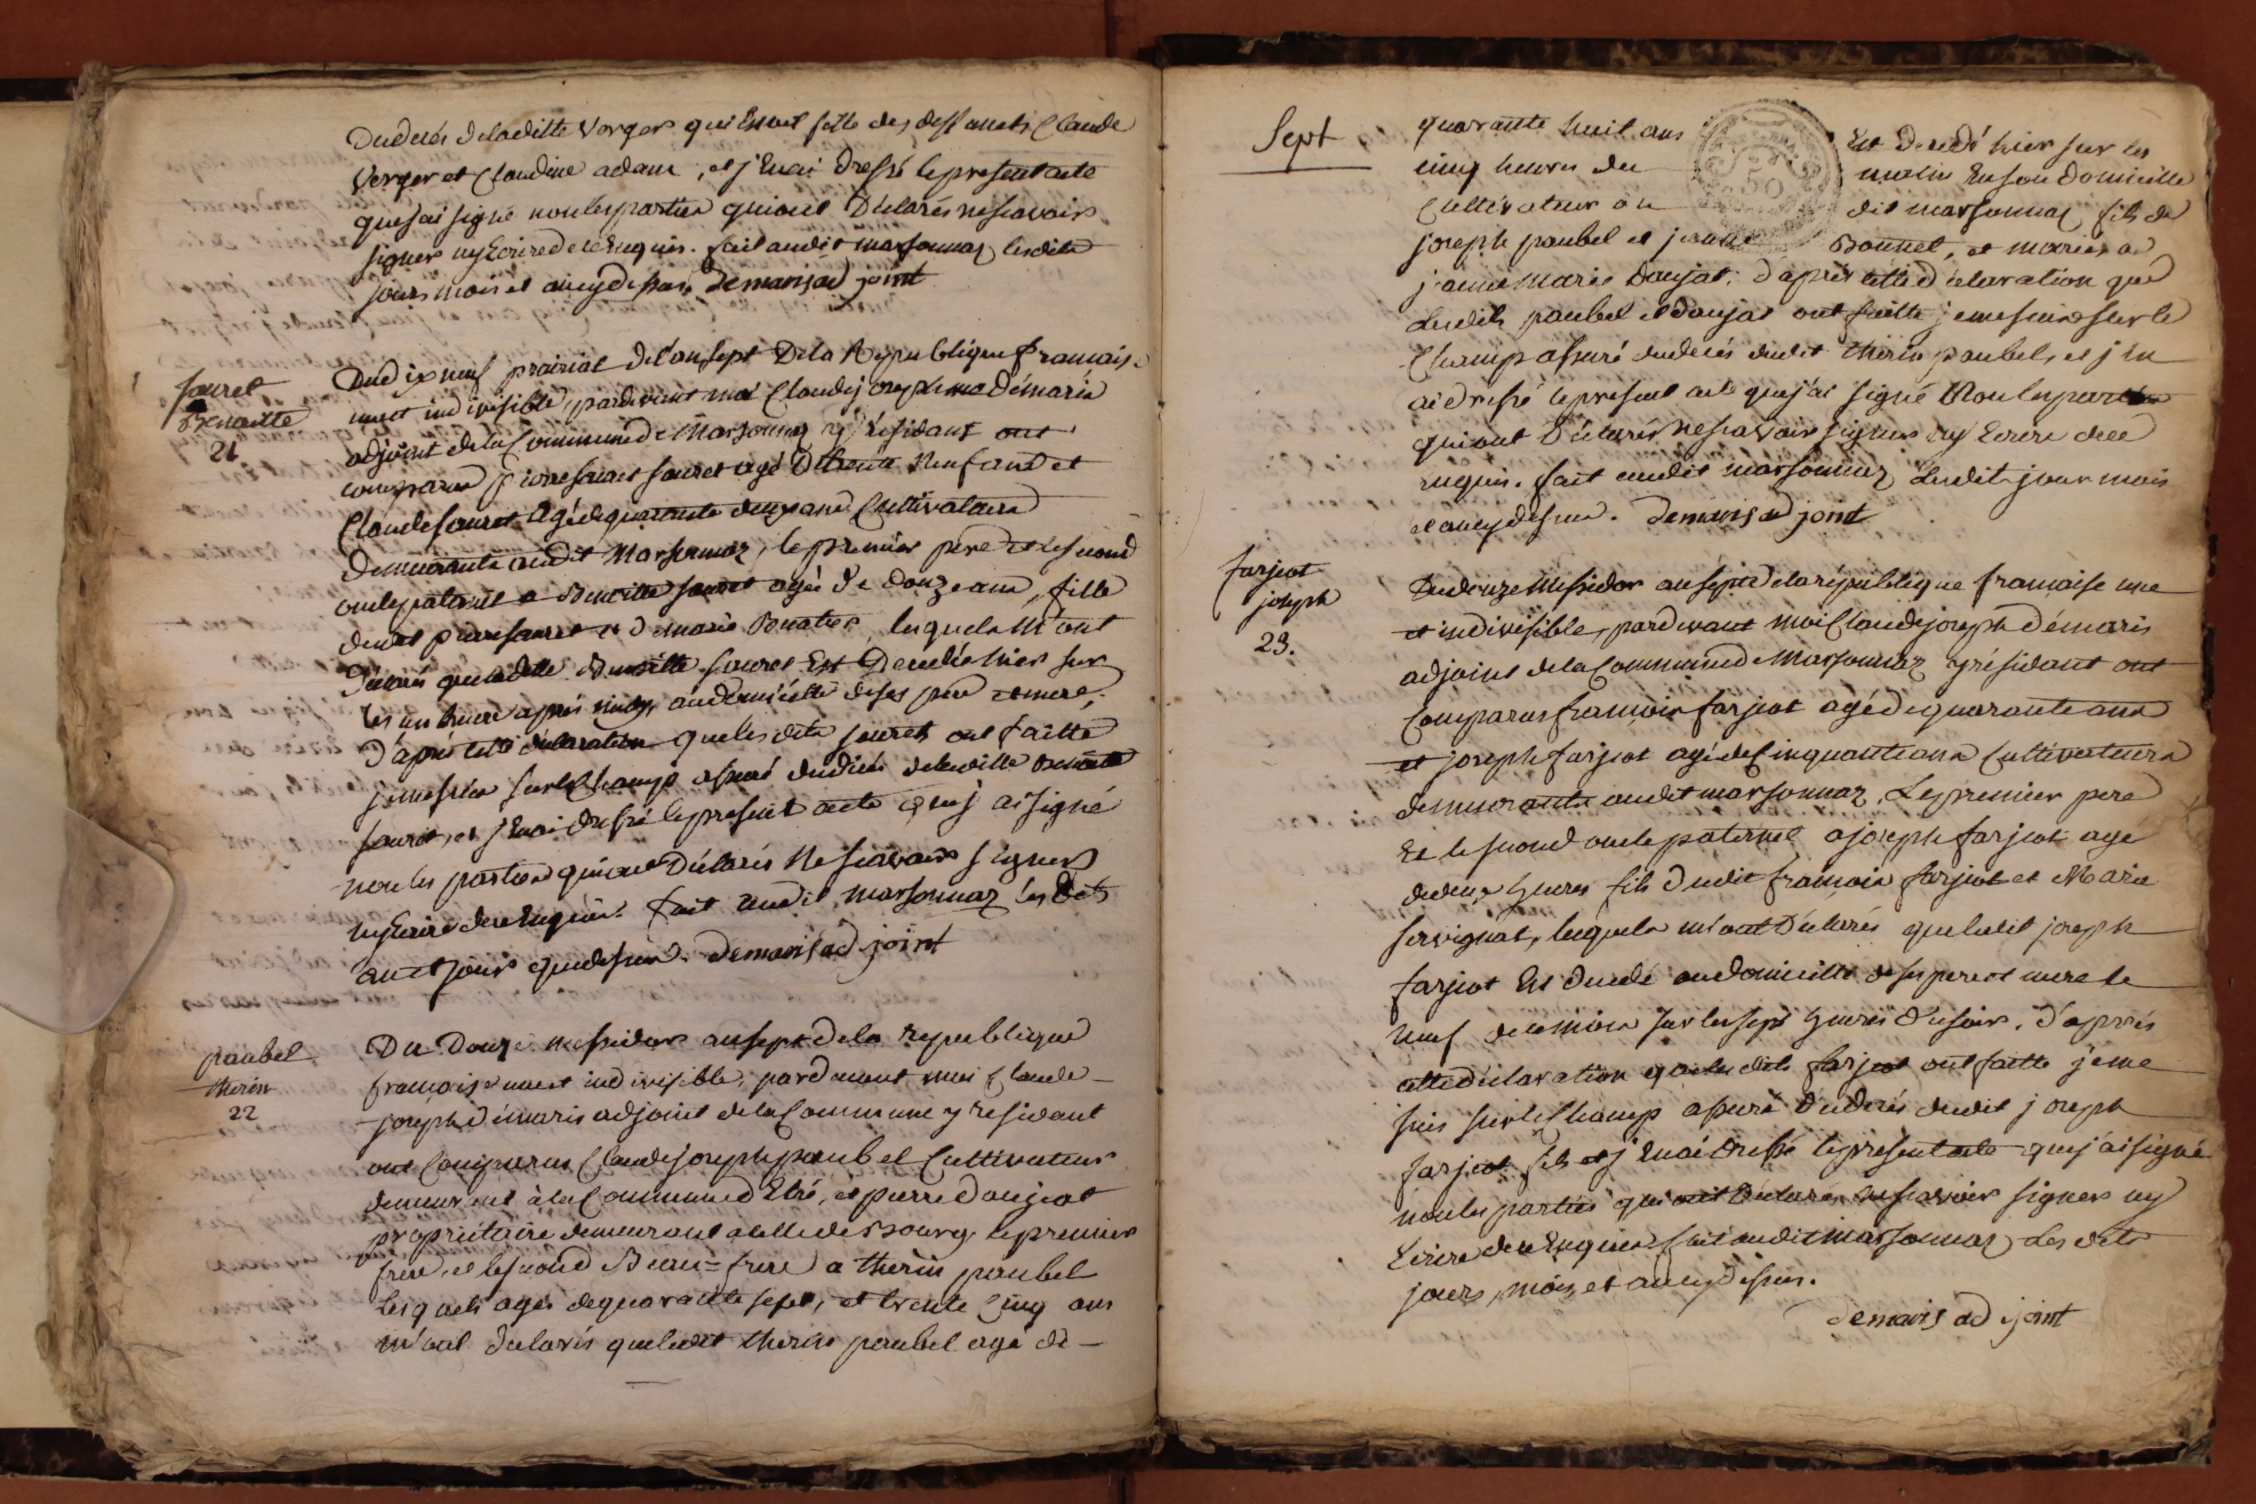 Dudecés deladitte Verger qui Estoit fille des deffuncts Claude
Verger et Claudine adam, et j'Enai Dressé lepresentacte
quejai signé nonlesparties quiont Déclarés nescavoir
signer nyEcriredeceEnquis. fait audit marsonnaz lesdits
jours mois et ancydessus Demarisad joint
Sauret
Benoitte
21
Dudixneuf prairial del'ansept Dela Republique francaise
uneet indivisible, pardevant moi Claudejoseph Démaris
adjoint delaCommunede Marsonnaz y Résidant ont
comparus pierre sauret agé Detrente Neuf ans et
Claudesauret Agédequarante deuxans Cultivateurs
Demeurants audit Marsonnaz, le premier pere et lesecond
onclepaternel a Benoitte sauret agée De douze ans, fille
dudit pierresauret et de marie Bouatier, lesquels M'ont
Déclarés queladitte Benoitte sauret Est Decedée hier sur
les un heure après midy, audomicille deses pere et mere,
D'après cette déclaration quelesdits saurets ont faitte
jemesuis surleChamp assuré dudécès deladitte Benoitte
sauret, et j'Enai dressé lepresent acte quej ai signé
non les parties quiont Déclarés Nescavoir signer
nyEcrire deceEnquis. fait audit marsonnaz lesdits
an et jour quedessus. Demarisad joint
paubel
therin
22
Du Douze messidor ansept dela Republique
francaise uneet indivisible, pardevant moi Claude
joseph démaris adjoint delaCommune y residant
ont Comparus Claudejosephpaubel Cultivateur
demeurant àlaCommuned'Etré, et pierre Daujat
propriétaire demeurant acelledeBourg, lepremier
frere, et lesecond Beau=frere a therin paubel
lesquels agés dequarante sept, et trente cinq ans
m'ont déclarés queledit therin paubel agé de
Sept
quarante huit ans Est Décédé hier sur les
cinq heures du matin Enson Domicille
Cultivateur au dit marsonnaz fils de
joseph paubel et jeanne Bonnet, et mariés a
jeanne marie Daujat. D'après cette déclaration que
Lesdits paubel et Daujat ont faitte jemesuis surle
Champ assuré dudecés dudit therin paubel, et j'en
ai dressé lepresent acte quej'ai signé Nonlesparties
quiont Déclarés Nescavoir signer ny Ecrire dece
requis. fait audit marsonnaz Lesdits jour mois
et ancydessus. Demaris ad joint
farjeot
joseph
23.
Dudouze Messidor ansept delarépublique francaise une
et indivisible, pardevant moiClaudejoseph démaris
adjoint delaCommunede Marsonnaz yrésidant ont
Comparus francois farjeot agédequarante ans
et joseph farjeot agédeCinquanteans Cultivateurs
demeurants audit marsonnaz, Lepremier pere
Et le second oncle paternel a joseph farjeot agé
dedeux heures fils dudit francois farjeot et Marie
servignat, lesquels m'ont Déclarés queledit joseph
farjeot Est Decedé audomicille desespereet mere le
neuf decemois sur lessept heures dusoir. D'après
cettedéclaration quelesdits farjeot ont faitte jeme
suis surleChamp assuré Dudecés dudit joseph
farjeot fils et j'Enai dressé lepresentacte quej'aisigné
nonles parties quiont Déclarés nescavoir signer ny
Ecrire deceEnquis fait audit Marsonnaz Lesdits
jours, mois, et ancydessus.
Demaris ad joint